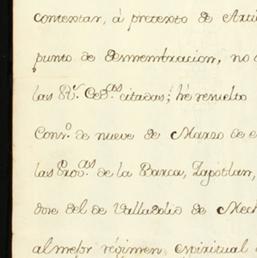 contentar, á pretexto de
punto de desmembracion, no
las R.s Ced.as citadas; hé resuelto
Con.o de nueve de Marzo de
las Pro.as de la Barca, Zapotlan,
do de Valladolid de Mech
al mejor régimen espiritual